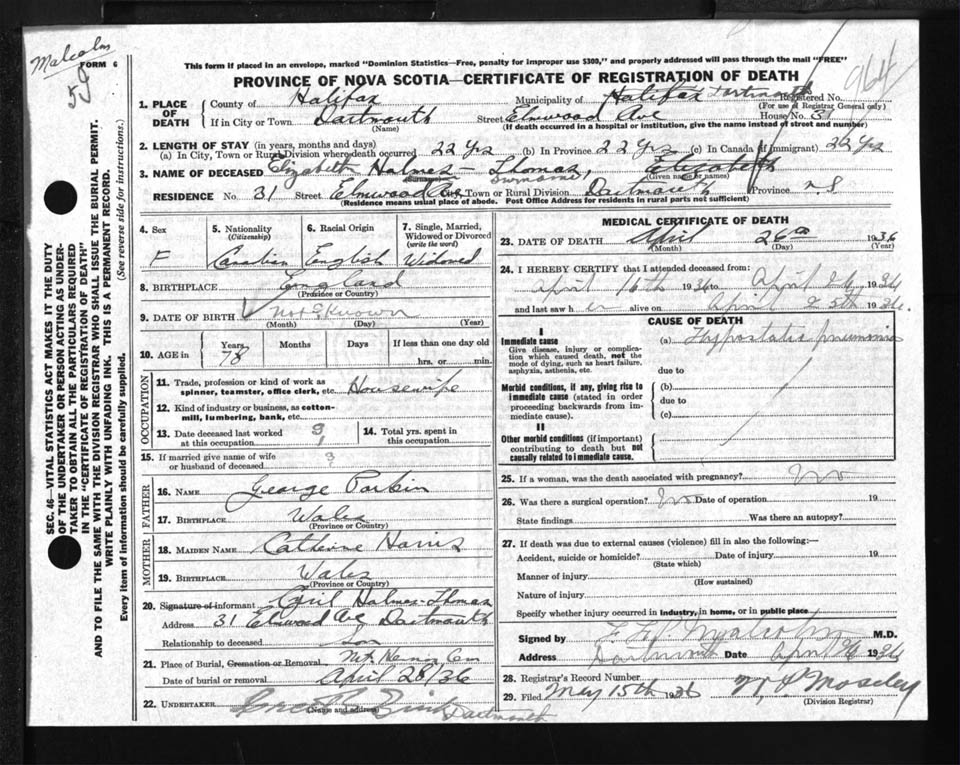 Malcolm
FORM 6
59
964
This form if placed in an envelope, marked "Dominion Statistics—Free, penalty for improper use $300," and properly addressed will pass through the mail "FREE"
PROVINCE OF NOVA SCOTIA—CERTIFICATE OF REGISTRATION OF DEATH
1. PLACE OF DEATH County of Halifax Municipality of Halifax Dartmouth Registered No.
(For use of Registrar General only)
If in City or Town Dartmouth Street Elmwood Ave House No. 31
(Name) (If death occurred in a hospital or institution, give the name instead of street and number)
2. LENGTH OF STAY (in years, months and days)
(a) In City, Town or Rural Division where death occurred 22 yrs (b) In Province 22 yrs (c) In Canada (if immigrant) 22 yrs
3. NAME OF DECEASED Elizabeth Holmes - Thomas, Elizabeth
(Surname) Surname (Given name or names)
RESIDENCE No. 31 Street Elmwood Ave City, Town or Rural Division Dartmouth Province N.S
(Residence means usual place of abode. Post Office Address for residents in rural parts not sufficient)
4. Sex
F
5. Nationality
(Citizenship)
Canadian
6. Racial Origin
English
7. Single, Married, Widowed or Divorced
(write the word)
Widowed
8. BIRTHPLACE England
(Province or Country)
9. DATE OF BIRTH Not Known
(Month) (Day) (Year)
10. AGE in Years Months Days If less than one day old
78 hrs. or min.
OCCUPATION
11. Trade, profession or kind of work as spinner, teamster, office clerk, etc. Housewife
12. Kind of industry or business, as cotton-mill, lumbering, bank, etc.
13. Date deceased last worked at this occupation ?
14. Total yrs. spent in this occupation
15. If married give name of wife or husband of deceased ?
FATHER
16. NAME George Parkin
17. BIRTHPLACE Wales
(Province or Country)
MOTHER
18. MAIDEN NAME Catherine Harris
19. BIRTHPLACE Wales
(Province or Country)
20. Signature of informant Cyril Holmes-Thomas
Address 31 Elmwood Ave Dartmouth
Relationship to deceased son
21. Place of Burial, Cremation or Removal Mt Hermon Cem
Date of burial or removal April 28/36
22. UNDERTAKER Dartmouth
(Name and address)
MEDICAL CERTIFICATE OF DEATH
23. DATE OF DEATH April 26th 1936
(Month) (Day) (Year)
24. I HEREBY CERTIFY that I attended deceased from:
April 16th 1936 to April 26 1936
and last saw h er alive on April 25th 1936
CAUSE OF DEATH
I
Immediate cause
Give disease, injury or complication which caused death, not the mode of dying, such as heart failure, asphyxia, asthenia, etc.
(a) Hypostatic pneumonia
due to
Morbid conditions, if any, giving rise to immediate cause (stated in order proceeding backwards from immediate cause).
(b)
due to
(c)
II
Other morbid conditions (if important) contributing to death but not causally related to immediate cause.
25. If a woman, was the death associated with pregnancy? No
26. Was there a surgical operation? No Date of operation 19
State findings Was there an autopsy?
27. If death was due to external causes (violence) fill in also the following:—
Accident, suicide or homicide? Date of injury 19
(State which)
Manner of injury
(How sustained)
Nature of injury
Specify whether injury occurred in industry, in home, or in public place
Signed by Malcolm M.D.
Address Dartmouth Date April 26 1936
28. Registrar's Record Number
29. Filed May 15th 1936 Moseley
(Division Registrar)
SEC. 46—VITAL STATISTICS ACT MAKES IT THE DUTY OF THE UNDERTAKER OR PERSON ACTING AS UNDERTAKER TO OBTAIN ALL THE PARTICULARS REQUIRED IN THE "CERTIFICATE OF REGISTRATION OF DEATH" AND TO FILE THE SAME WITH THE DIVISION REGISTRAR WHO SHALL ISSUE THE BURIAL PERMIT.
WRITE PLAINLY WITH UNFADING INK. THIS IS A PERMANENT RECORD.
Every item of information should be carefully supplied. (See reverse side for instructions.)